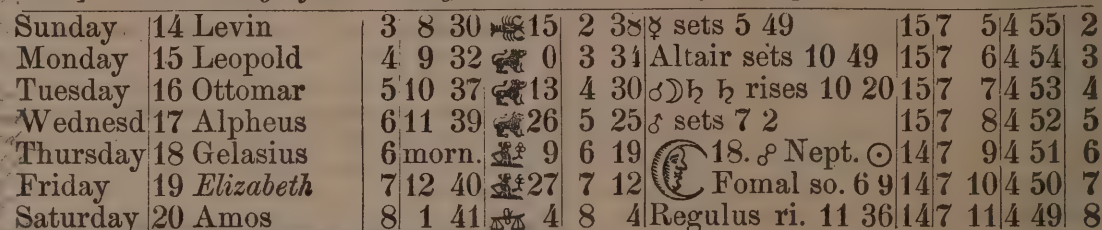 Sunday 14 Levin 3 8 30 15 2 38 ☿ sets 5 49 15 7 5 4 55 2
Monday 15 Leopold 4 9 32 0 3 34 Altair sets 10 49 15 7 6 4 54 3
Tuesday 16 Ottomar 5 10 37 13 4 30 ☌☽♄ ♄ rises 10 20 15 7 7 4 53 4
Wednesd 17 Alpheus 6 11 39 26 5 25 ♂ sets 7 2 15 7 8 4 52 5
Thursday 18 Gelasius 6 morn. 9 6 19 18. ☍ Nept. ☉ 14 7 9 4 51 6
Friday 19 Elizabeth 7 12 40 27 7 12 Fomal so. 6 9 14 7 10 4 50 7
Saturday 20 Amos 8 1 41 4 8 4 Regulus ri. 11 36 14 7 11 4 49 8